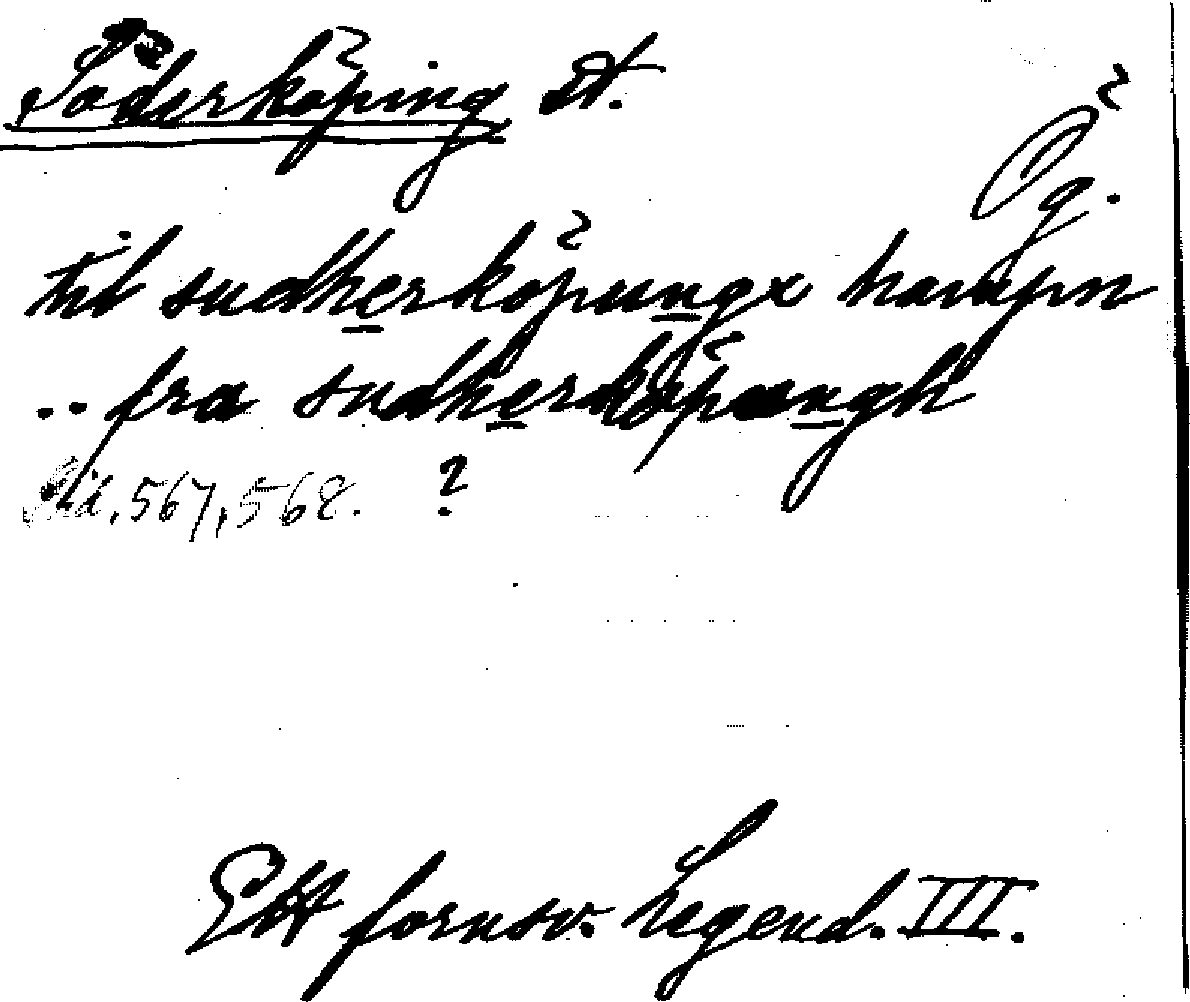 Söderköping St.
Ög.
til sudherköpungx hampn
.. fra sudherköpungh
Sid. 567, 568. ?
Ett fornsv. Legend. III.